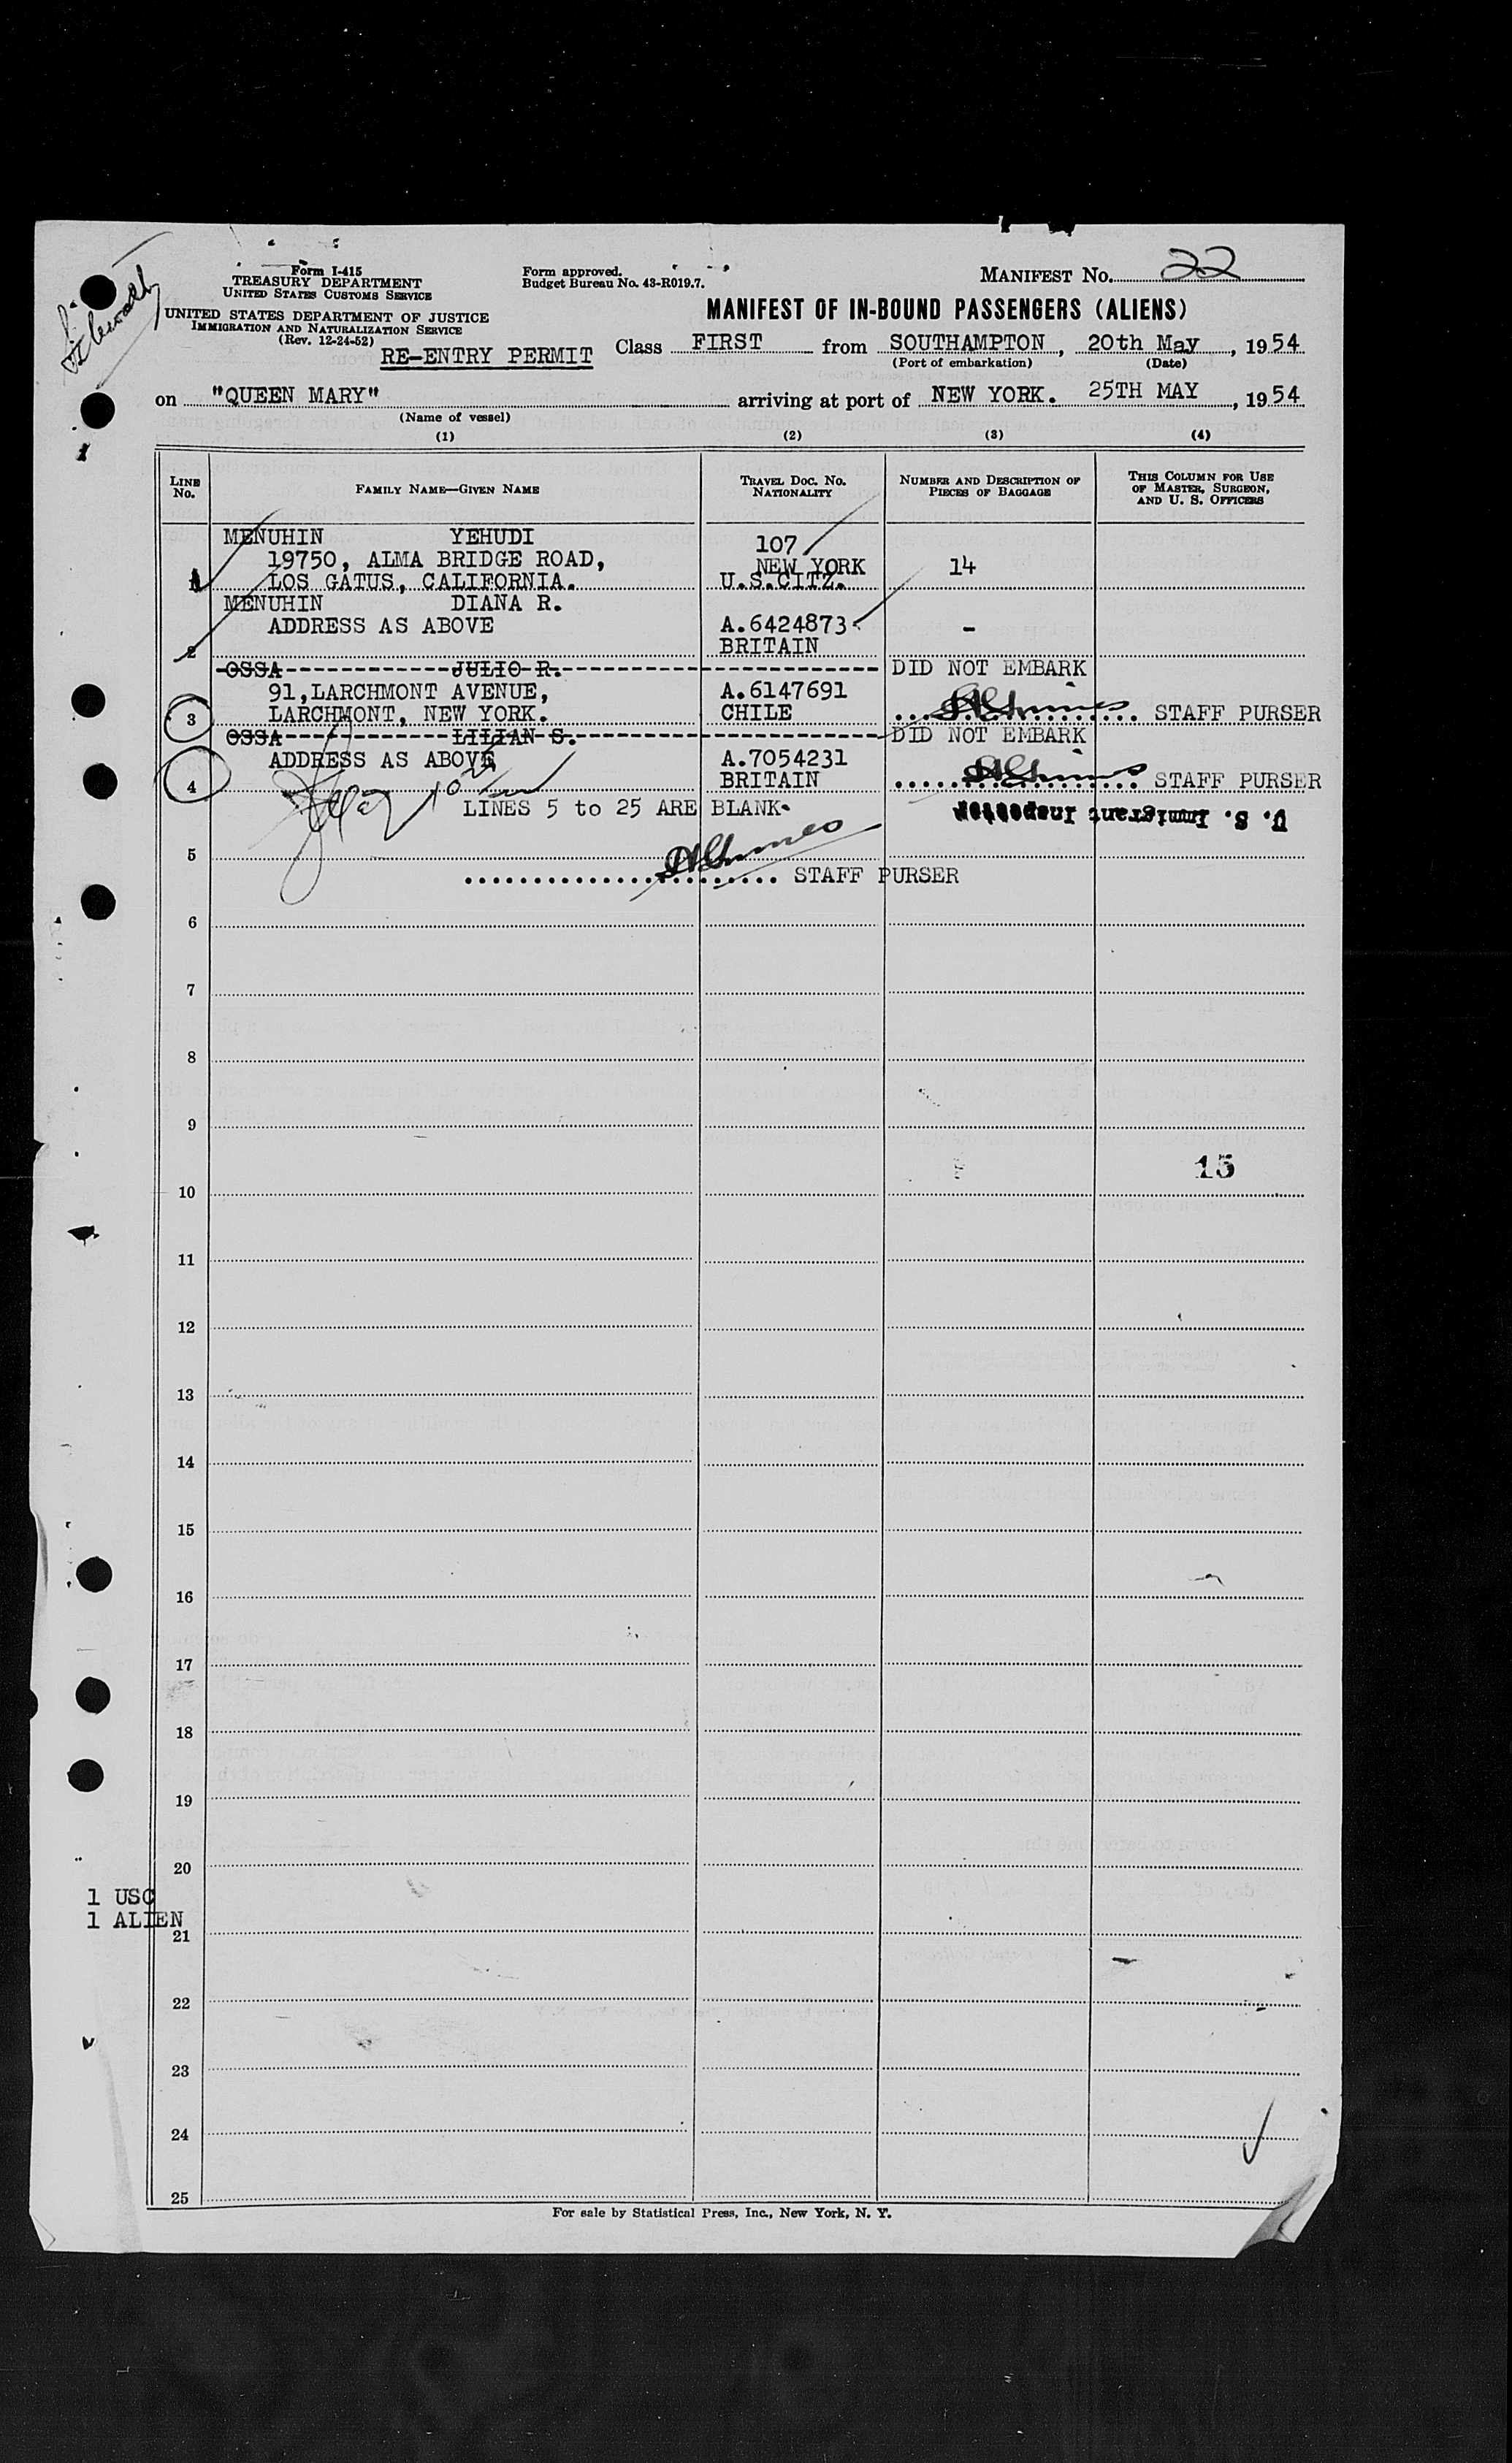 Form I-415
TREASURY DEPARTMENT
UNITED STATES CUSTOMS SERVICE
UNITED STATES DEPARTMENT OF JUSTICE
IMMIGRATION AND NATURALIZATION SERVICE
(Rev. 12-24-52)
RE-ENTRY PERMIT
Form approved.
Budget Bureau No. 43-R019.7.
MANIFEST No. 22
MANIFEST OF IN-BOUND PASSENGERS (ALIENS)
Class FIRST from SOUTHAMPTON, 20th May, 1954
(Port of embarkation) (Date)
on "QUEEN MARY" arriving at port of NEW YORK. 25TH MAY, 1954
(Name of vessel)
(1) (2) (3) (4)
LINE No. FAMILY NAME—GIVEN NAME TRAVEL DOC. NO. NATIONALITY NUMBER AND DESCRIPTION OF PIECES OF BAGGAGE THIS COLUMN FOR USE OF MASTER, SURGEON, AND U. S. OFFICERS
MENUHIN YEHUDI 107
19750, ALMA BRIDGE ROAD, NEW YORK 14
1 LOS GATUS, CALIFORNIA. U.S.CITZ.
MENUHIN DIANA R.
ADDRESS AS ABOVE A.6424873 -
2 BRITAIN
OSSA JULIO R. DID NOT EMBARK
91, LARCHMONT AVENUE, A.6147691
3 LARCHMONT, NEW YORK. CHILE STAFF PURSER
OSSA LILIAN S. DID NOT EMBARK
ADDRESS AS ABOVE A.7054231
4 BRITAIN STAFF PURSER
LINES 5 to 25 ARE BLANK.
U. S. Immigrant Inspector
5
STAFF PURSER
6
7
8
9
15
10
11
12
13
14
15
16
17
18
19
20
1 USC
1 ALIEN
21
22
23
24
25
For sale by Statistical Press, Inc., New York, N. Y.